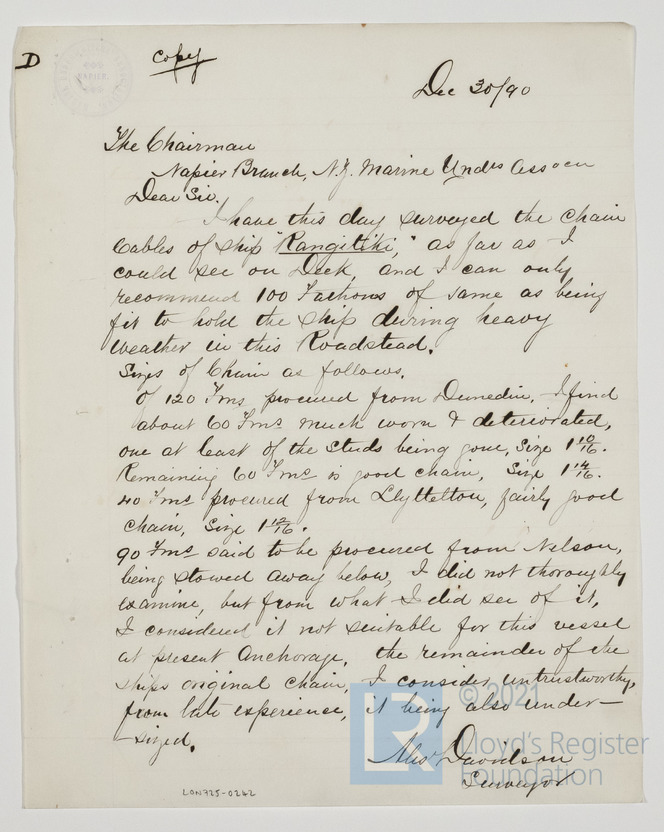 D
copy
Dec 30/90
The Chairman
Napier Branch, N.Z. Marine Undrs Assocn
Dear Sir.
I have this day surveyed the chain
Cables of ship "Rangitiki," as far as I
could see on Deck, and I can only
recommend 100 Fathoms of same as being
fit to hold the ship during heavy
weather in this Roadstead.
Sizes of Chain as follows.
Of 120 Fms procured from Dunedin, I find
about 60 Fms much worn & deteriorated,
one at least of the studs being gone, Size 1 10/16.
Remaining 60 Fms is good chain, Size 1 14/16.
40 Fms procured from Lyttelton, fairly good
chain, Size 1 12/16.
90 Fms said to be procured from Nelson,
being stowed away below, I did not thoroughly
examine, but from what I did see of it,
I considered it not suitable for this vessel
at present Anchorage, the remainder of the
ships original chain, I consider untrustworthy,
from late experience, it being also under-
-sized.
Alexr Davidson
Surveyor
LON725-0242
LR
© 2021
Lloyd's Register
Foundation